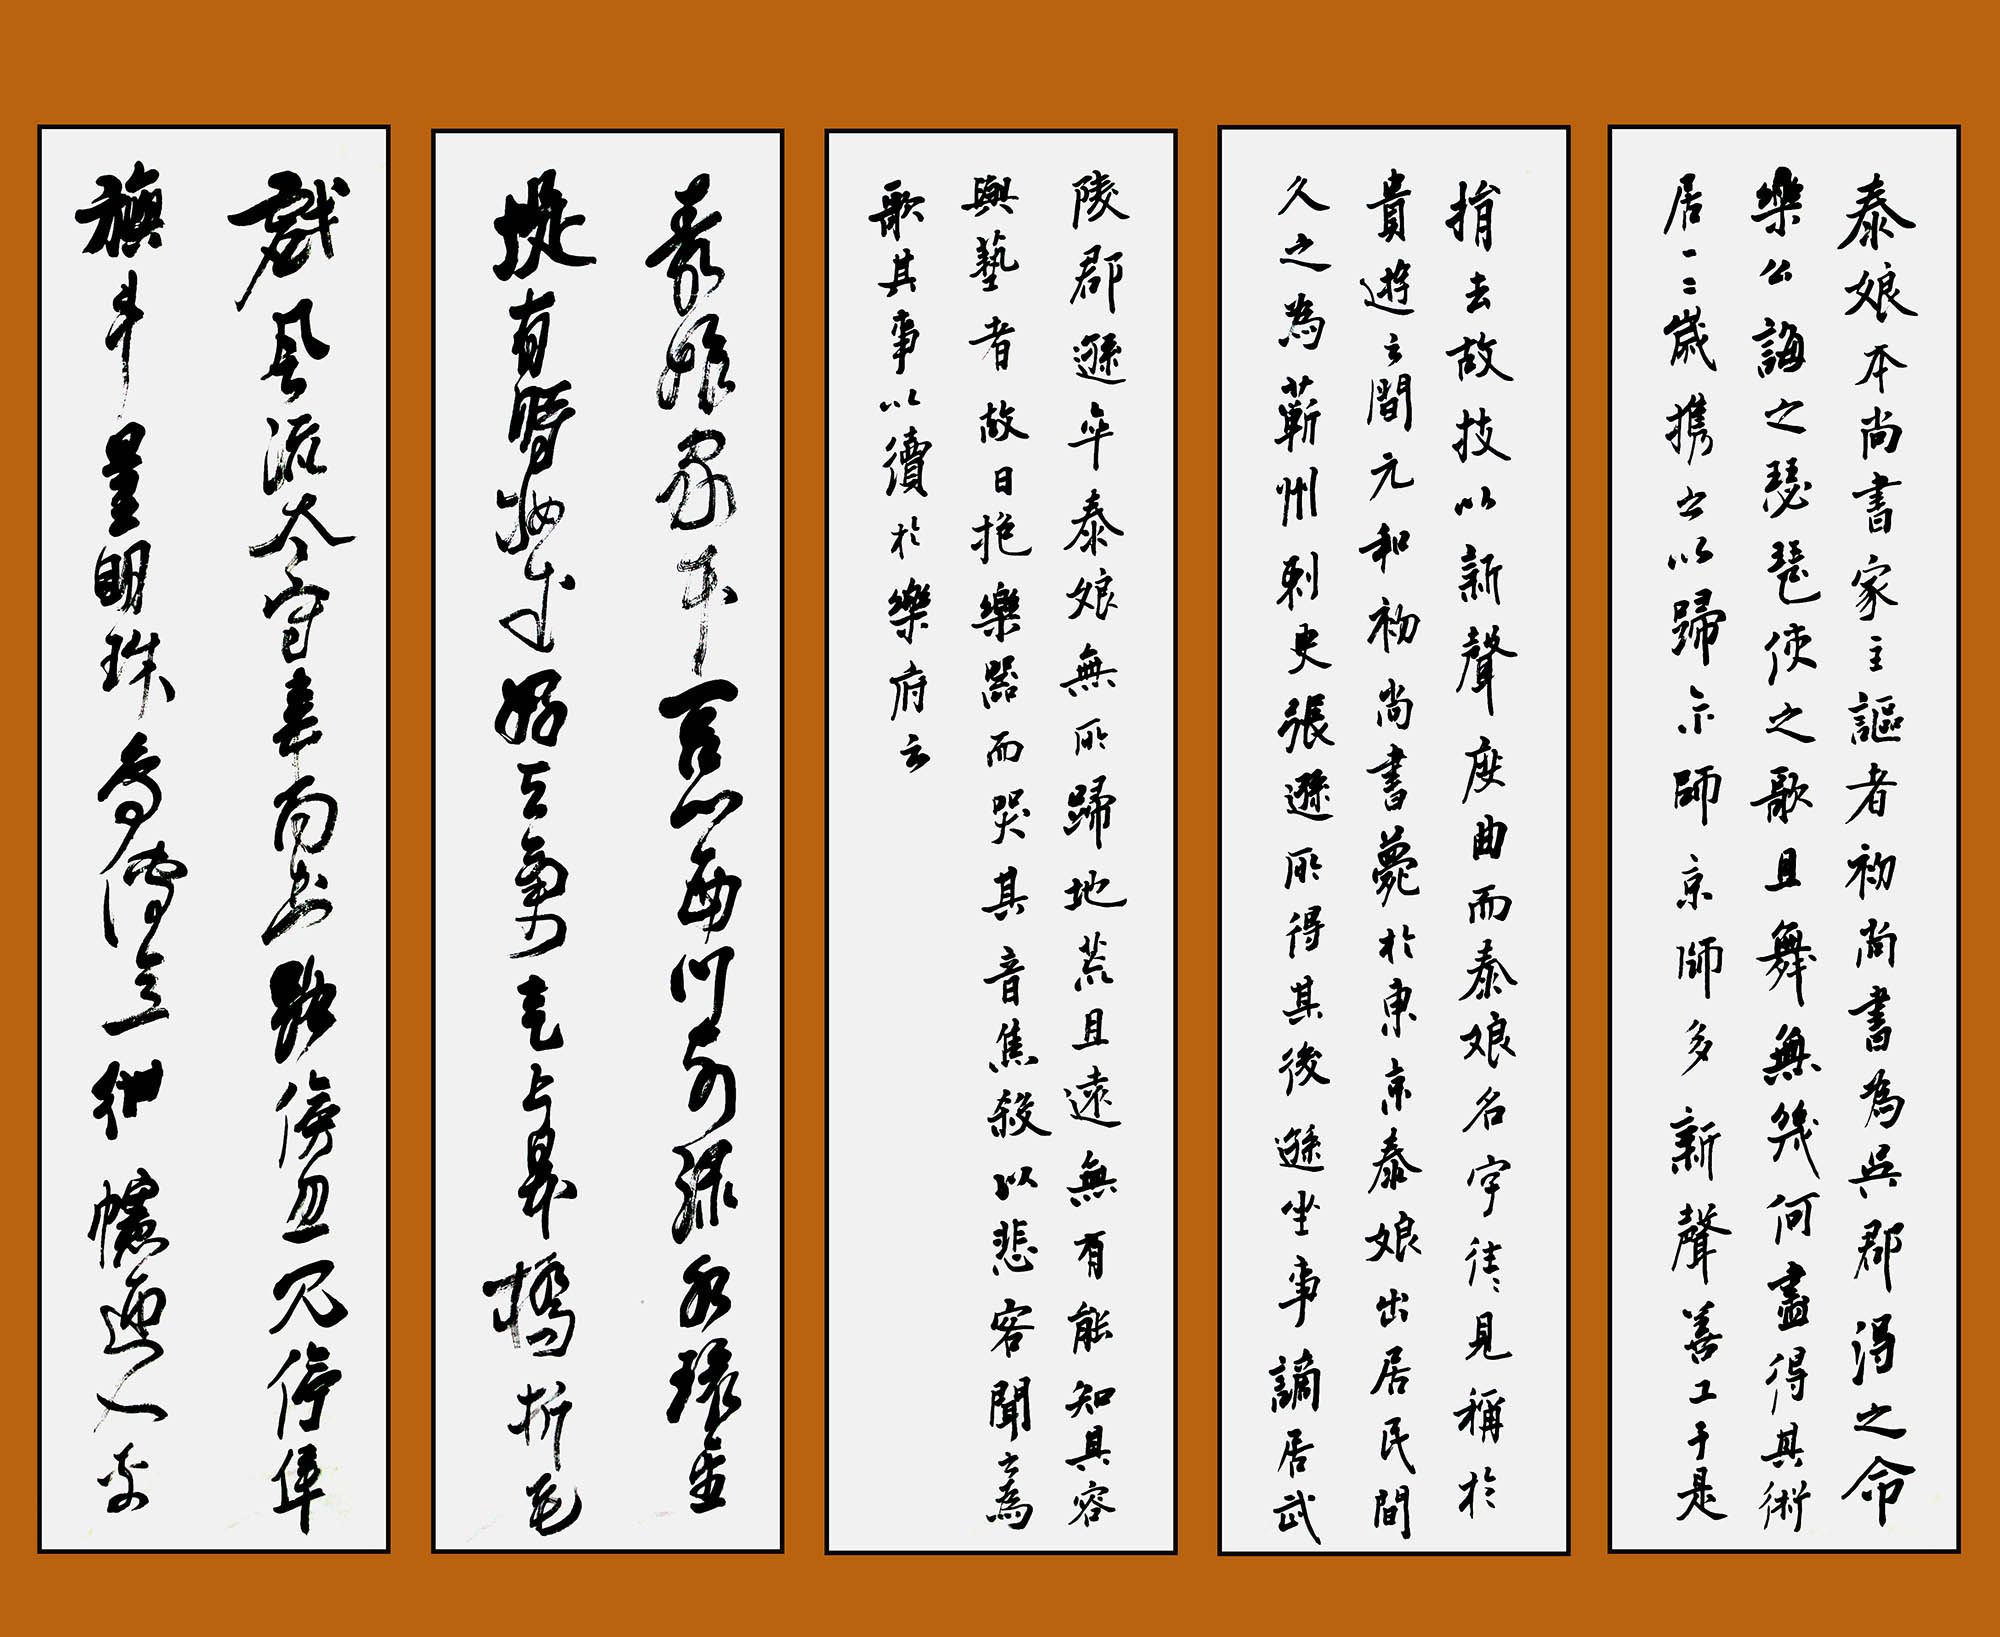 泰娘本尚書家主謳者初尚書為吳郡得之命
樂公誨之琵琶使之歌且舞無幾何盡得其術
居一二歲携之以歸京師京師多新聲善工于是
捐去故技以新聲度曲而泰娘名字徃〻見稱於
貴遊之間元和初尚書薨於東京泰娘出居民間
久之為蘄州刺史張遜所得其後遜坐事謫居武
陵郡遜卒泰娘無所歸地荒且遠無有能知其容
與藝者故日抱樂器而哭其音焦殺以悲客聞之為
歌其事以續於樂府云
泰娘家本閶門西門前綠水環金
堤有時妝成好天氣走上皋橋折花
戲風流太守韋尚書路傍忽見停隼
旟斗量明珠鳥傳意紺幰迎入專